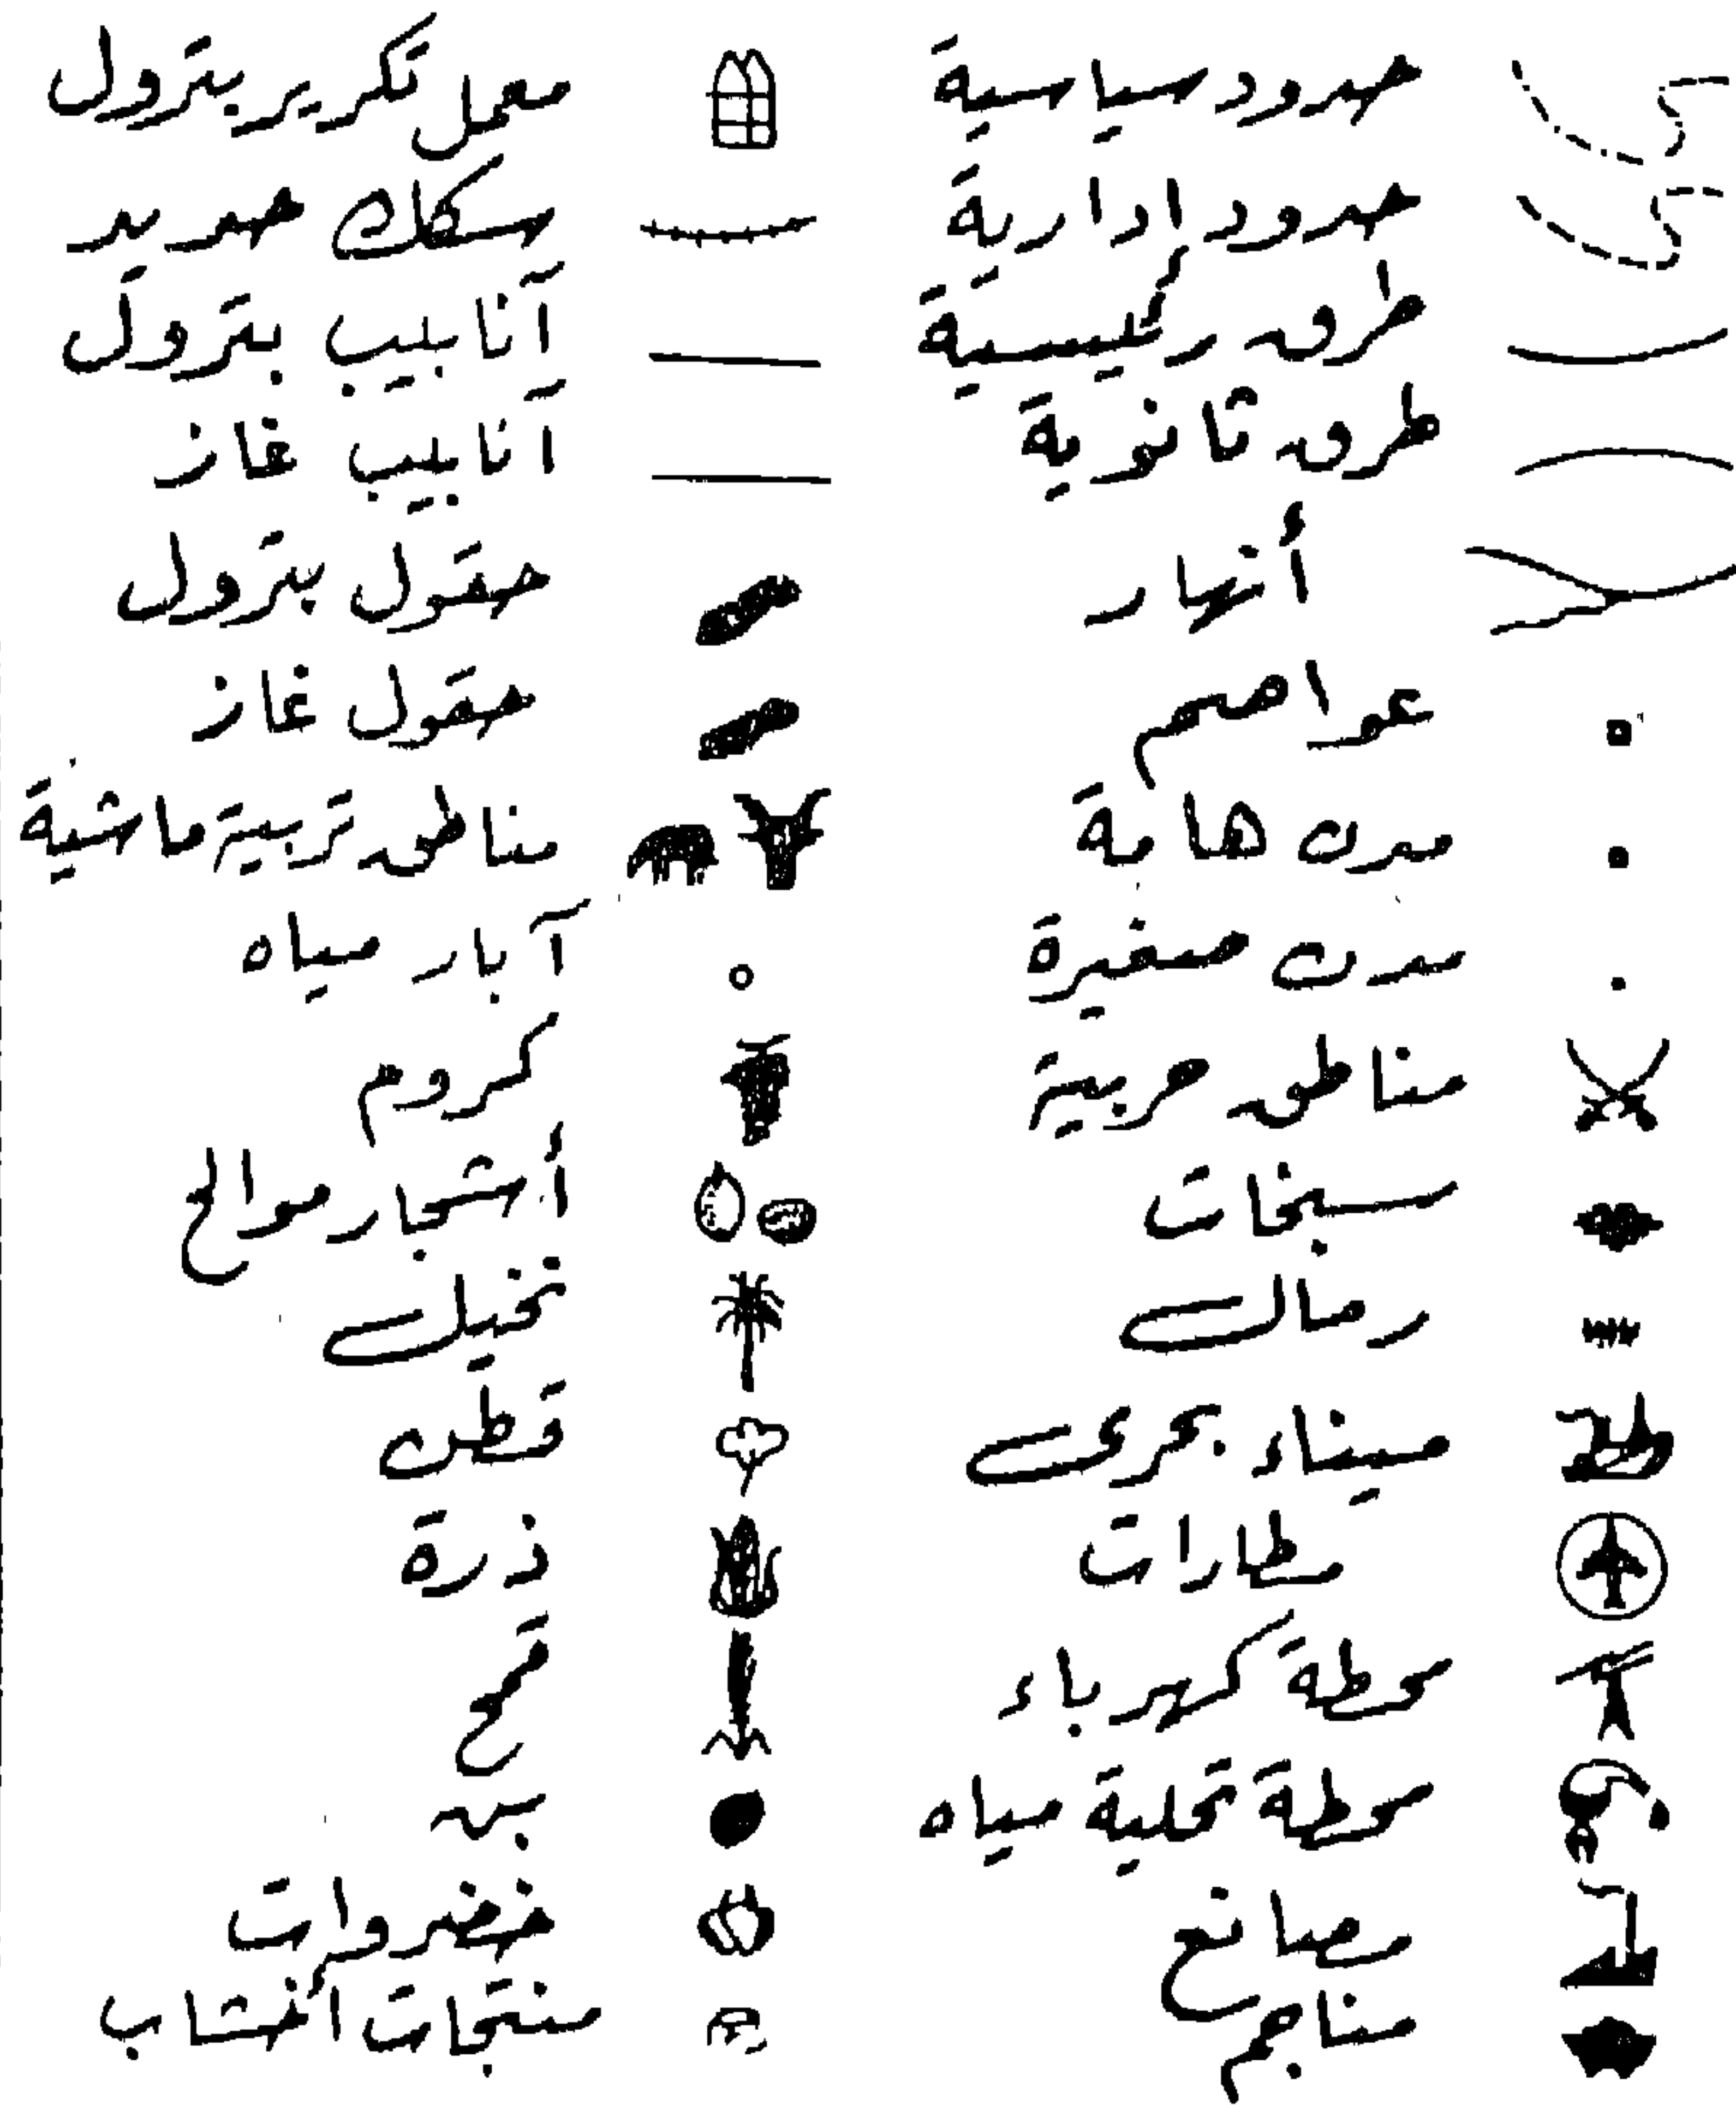 حدود سياسية
حدود ادارية
طرق رئيسية
طرق ثانوية
أنهار
عواصم
مدن هامة
مدن صغيرة
مناطق حربية
سبخات
رمال
ميناء بحرى
مطارات
محطة كهرباء
محطة تحلية مياه
مصانع
مناجم
معمل تكرير بترول
سكك حديد
آنابيب بترول
آنابيب غاز
حقول بترول
حقول غاز
مناطق تربية ماشية
آبار مياه
كروم
أشجار موالح
نخيل
قطن
ذرة
قمح
بن
خضروات
منتجات أخشاب